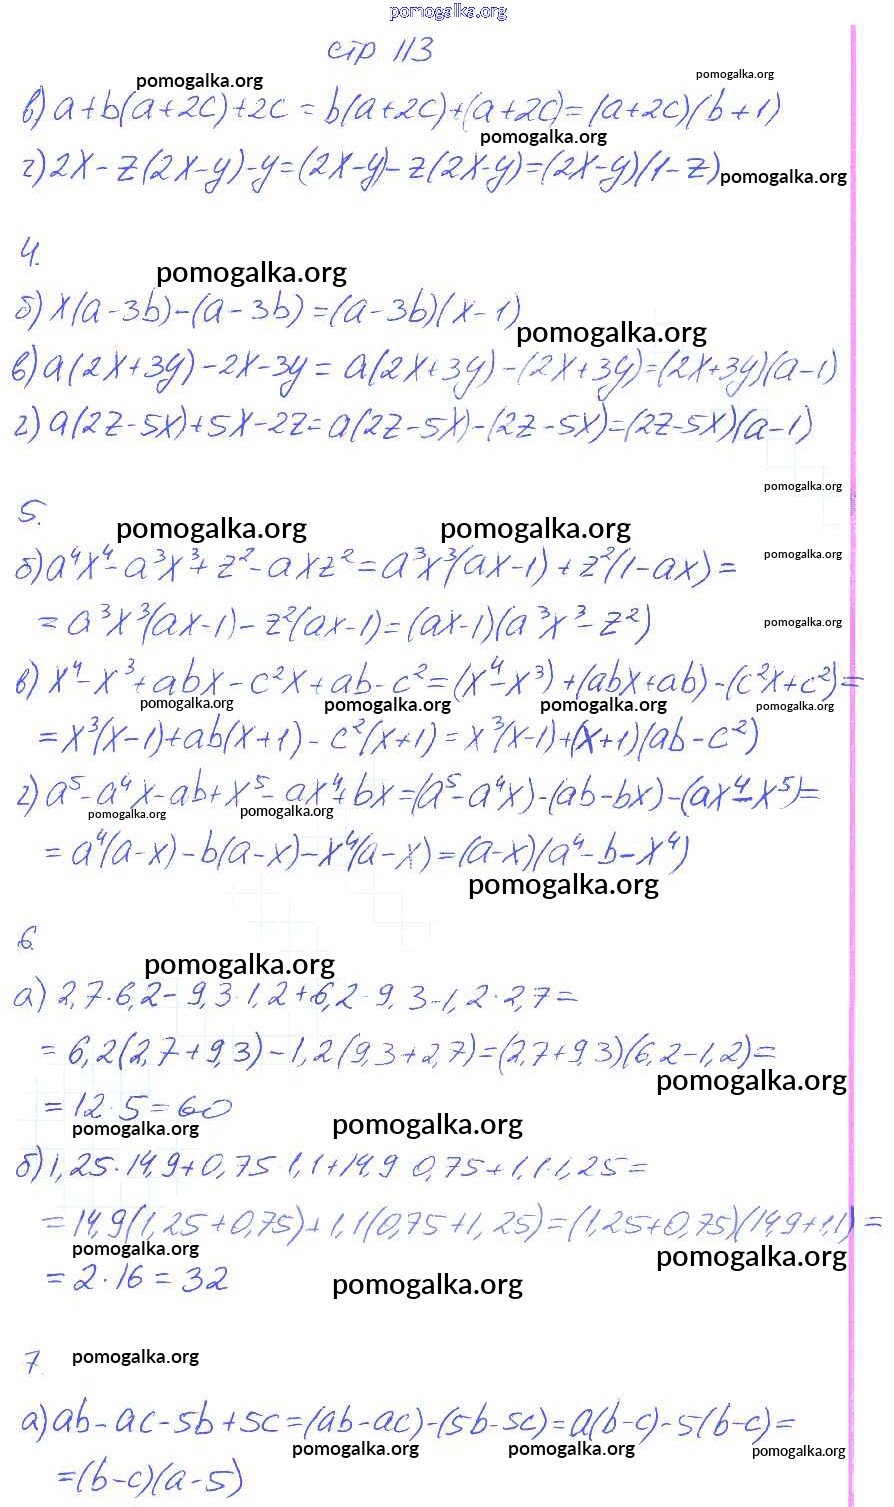 pomogalka.org
стр 113
pomogalka.org pomogalka.org
в) a+b(a+2c)+2c = b(a+2c)+(a+2c)= (a+2c)(b+1)
pomogalka.org
г) 2x - z(2x-y)-y=(2x-y)-z(2x-y)=(2x-y)(1-z)
pomogalka.org
4.
pomogalka.org
б) x(a-3b)-(a-3b)=(a-3b)(x-1)
pomogalka.org
в) a(2x+3y)-2x-3y= a(2x+3y)-(2x+3y)=(2x+3y)(a-1)
г) a(2z-5x)+5x-2z=a(2z-5x)-(2z-5x)=(2z-5x)(a-1)
pomogalka.org
5.
pomogalka.org pomogalka.org
pomogalka.org
б) a⁴x⁴-a³x³+z²-axz²=a³x³(ax-1)+z²(1-ax)=
=a³x³(ax-1)-z²(ax-1)=(ax-1)(a³x³-z²)
pomogalka.org
в) x⁴-x³+abx-c²x+ab-c²=(x⁴-x³)+(abx+ab)-(c²x+c²)=
pomogalka.org pomogalka.org pomogalka.org pomogalka.org
=x³(x-1)+ab(x+1)-c²(x+1)=x³(x-1)+(x+1)(ab-c²)
г) a⁵-a⁴x-ab+x⁵-ax⁴+bx=(a⁵-a⁴x)-(ab-bx)-(ax⁴-x⁵)=
pomogalka.org pomogalka.org
=a⁴(a-x)-b(a-x)-x⁴(a-x)=(a-x)(a⁴-b-x⁴)
pomogalka.org
6.
pomogalka.org
а) 2,7·6,2-9,3·1,2+6,2·9,3-1,2·2,7=
=6,2(2,7+9,3)-1,2(9,3+2,7)=(2,7+9,3)(6,2-1,2)=
pomogalka.org
=12·5=60
pomogalka.org pomogalka.org
б) 1,25·14,9+0,75 1,1+14,9 0,75+1,1·1,25=
=14,9(1,25+0,75)+1,1(0,75+1,25)=(1,25+0,75)(14,9+1,1)=
pomogalka.org pomogalka.org
=2·16=32
pomogalka.org
7. pomogalka.org
а) ab-ac-5b+5c=(ab-ac)-(5b-5c)=a(b-c)-5(b-c)=
pomogalka.org pomogalka.org pomogalka.org
=(b-c)(a-5)